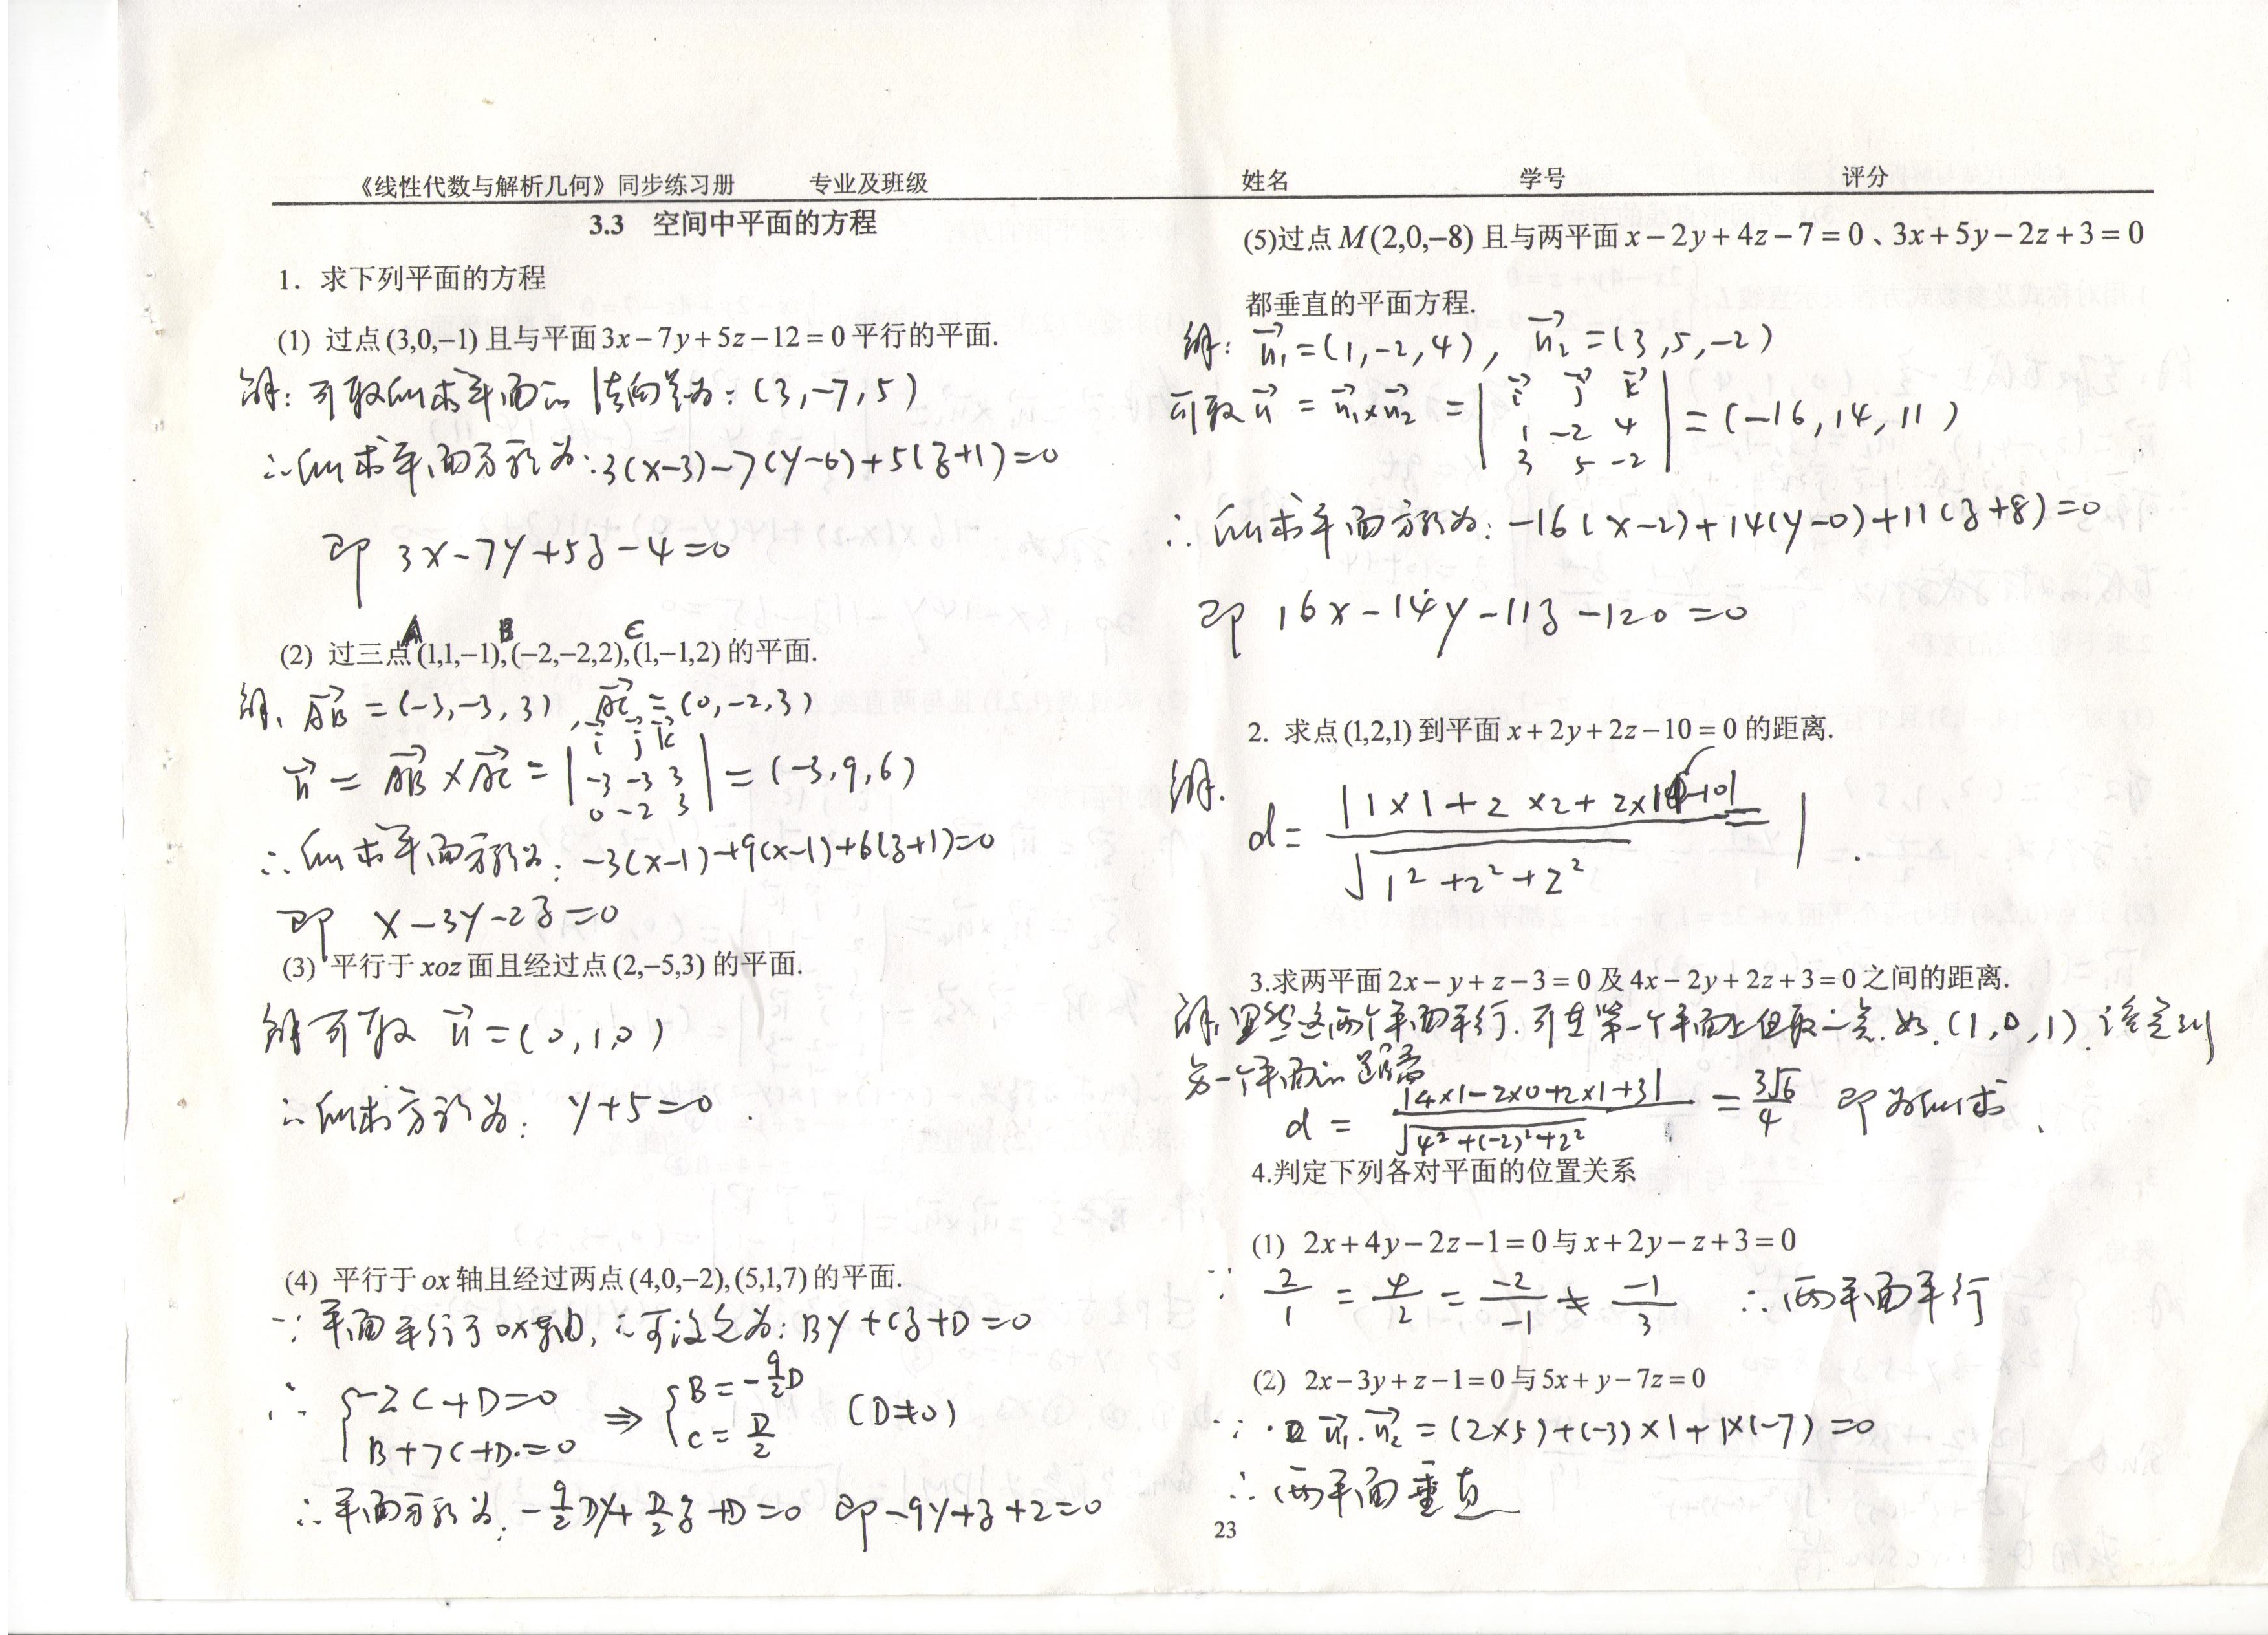 《线性代数与解析几何》同步练习册 专业及班级 姓名 学号 评分
3.3 空间中平面的方程
1. 求下列平面的方程
(1) 过点(3,0,−1)且与平面3x−7y+5z−12=0平行的平面.
解: 可取所求平面的法向量为: (3,−7,5)
∴所求平面方程为: 3(x−3)−7(y−0)+5(z+1)=0
即 3x−7y+5z−4=0
A B C
(2) 过三点(1,1,−1),(−2,−2,2),(1,−1,2)的平面.
解. AB⃗=(−3,−3,3), AC⃗=(0,−2,3)
n⃗ = AB⃗×AC⃗ = | i⃗ j⃗ k⃗ ; −3 −3 3 ; 0 −2 3 | = (−3,9,6)
∴所求平面方程为: −3(x−1)+9(x−1)+6(z+1)=0
即 x−3y−2z=0
(3) 平行于xoz面且经过点(2,−5,3)的平面.
解 可取 n⃗=(0,1,0)
∴所求方程为: y+5=0.
(4) 平行于ox轴且经过两点(4,0,−2),(5,1,7)的平面.
∵平面平行于ox轴, ∴可设它为: By+Cz+D=0
∴ { −2C+D=0 ; B+7C+D=0 ⇒ { B=−9/2D ; C=D/2 (D≠0)
∴平面方程为: −9/2Dy+D/2z+D=0 即−9y+z+2=0
(5)过点M(2,0,−8)且与两平面x−2y+4z−7=0、3x+5y−2z+3=0
都垂直的平面方程.
解: n₁⃗=(1,−2,4), n₂⃗=(3,5,−2)
可取n⃗ = n₁⃗×n₂⃗ = | i⃗ j⃗ k⃗ ; 1 −2 4 ; 3 5 −2 | = (−16,14,11)
∴所求平面方程为: −16(x−2)+14(y−0)+11(z+8)=0
即 16x−14y−11z−120=0
2. 求点(1,2,1)到平面x+2y+2z−10=0的距离.
解. d= |1×1+2×2+2×1−10| / √(1²+2²+2²) = 1.
3.求两平面2x−y+z−3=0及4x−2y+2z+3=0之间的距离.
解. 显然这两个平面平行. 可在第一个平面上任取一点. 如. (1,0,1). 该点到
另一个平面的距离
d = |4×1−2×0+2×1+3| / √(4²+(−2)²+2²) = 3√6/4 即为所求.
4.判定下列各对平面的位置关系
(1) 2x+4y−2z−1=0与x+2y−z+3=0
∵ 2/1 = 4/2 = −2/−1 ≠ −1/3 ∴两平面平行
(2) 2x−3y+z−1=0与5x+y−7z=0
∵ n₁⃗·n₂⃗=(2×5)+(−3)×1+1×(−7)=0
∴两平面垂直
23